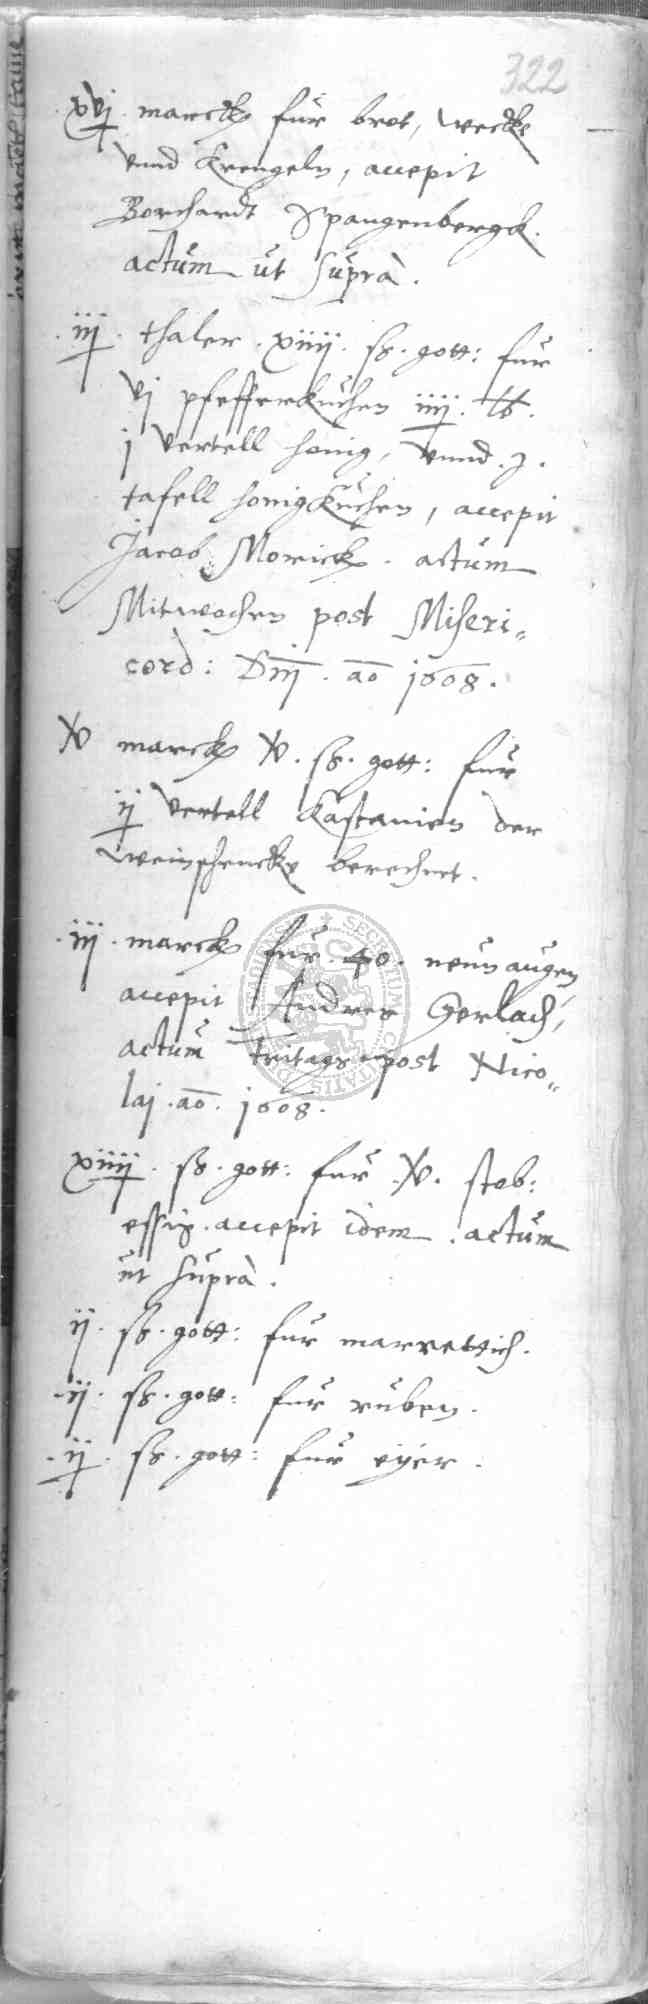 322
xvj. marck für brot, wecke
vnnd Krengeln, accepit
Borchardt Spangenbergk.
actum ut suprà.
iij. thaler. xiiij. ß. gott: für
vj pfefferkuchen iiij. lb.
j vertell honig, vnnd. 2.
tafell honigkuchen, accepit
Jacob Morick. actum
Mitwochen post Miseri„
cord: Dnj. ao 1608.
xv marck xv. ß. gott: für
ij vertell Kastanien der
weinschencke berechnet.
iij. marck für. 40. neunaugen
accepit Andres Gerlach,
actum fritags post Nico„
laj. ao. 1608.
xiiij. ß. gott: für. xv. stob:
essig. accepit idem. actum
ut suprà.
ij. ß. gott: für marrettich.
ij. ß. gott: für rüben.
ij. ß. gott: für eÿer.
SECRETUM CIVITATIS